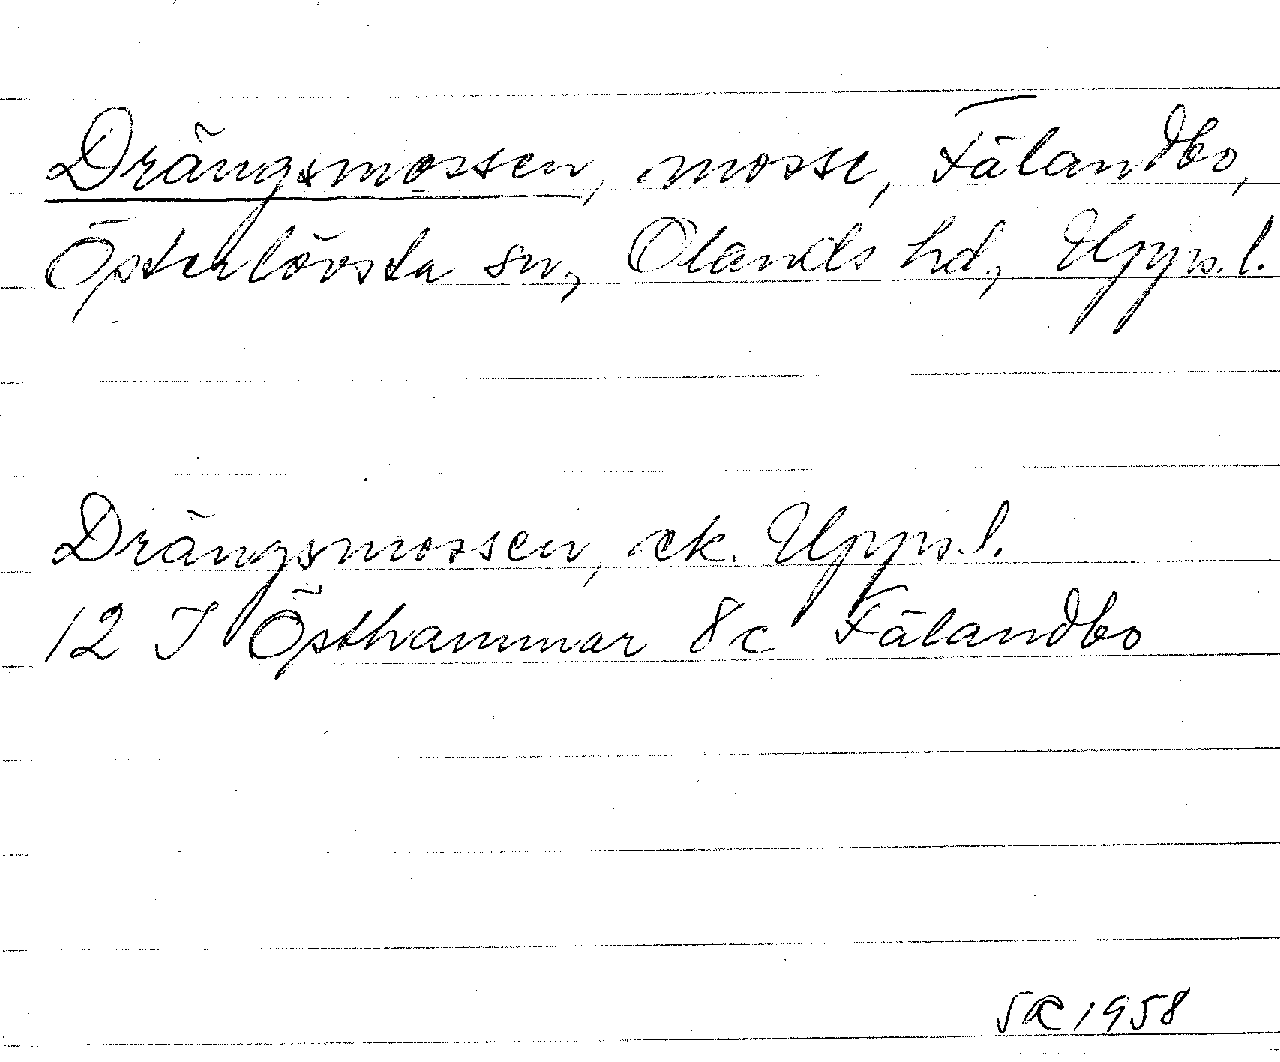 Drängsmossen, mosse, Fälandbo,
Österlövsta sn, Olands hd, Upps. l.
Drängsmossen, ek. Upps. l.
12 I Östhammar 8c Fälandbo
1958